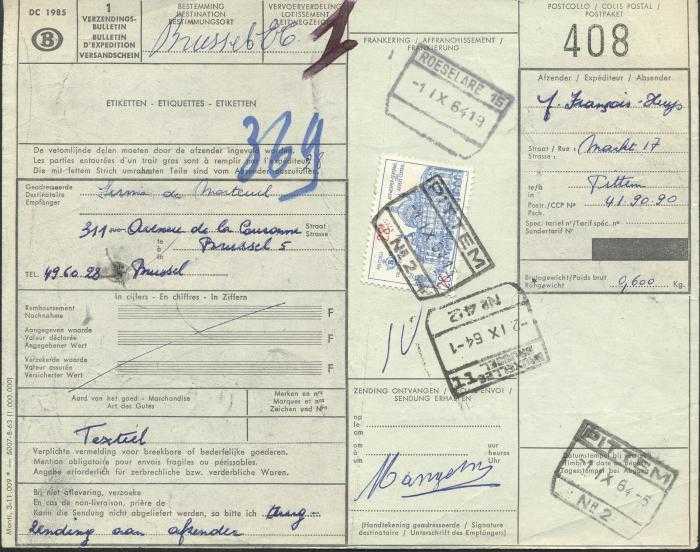 DC 1985
B
1
VERZENDINGS-
BULLETIN
BULLETIN
D'EXPEDITION
VERSANDSCHEIN
BESTEMMING
DESTINATION
BESTIMMUNGSORT
VERVOERVERDELING
LOTISSEMENT
Brussel
1
ETIKETTEN - ETIQUETTES - ETIKETTEN
329
De vetomlijnde delen moeten door de afzender ingevuld worden.
Les parties entourées d'un trait gras sont à remplir par l'expéditeur.
Die mit fettem Strich umrahmten Teile sind vom Absender auszufüllen.
Geadresseerde
Destinataire
Empfänger
311 Avenue de la Couronne
Straat
Strasse
te
à
in
Brussel 5
TEL. 49.60.28 Brussel
In cijfers - En chiffres - In Ziffern
Remboursement
Nachnahme
F
Aangegeven waarde
Valeur déclarée
Angegebener Wert
F
Verzekerde waarde
Valeur assurée
Versicherter Wert
F
Aard van het goed - Marchandise
Art des Gutes
Merken en nrs
Marques et nos
Zeichen und Nn
Textiel
Verplichte vermelding voor breekbare of bederfelijke goederen.
Mention obligatoire pour envois fragiles ou périssables.
Angabe erforderlich für zerbrechliche bzw. verderbliche Waren.
Bij niet aflevering, verzoeke
En cas de non-livraison, prière de
Kann die Sendung nicht abgeliefert werden, so bitte ich
terug-
zending aan afzender
FRANKERING / AFFRANCHISSEMENT /
FRANKIERUNG
ROESELARE 15
-1 IX 6419
PITTEM
Nr 2
Nr 42
-2 IX 64-1
11
ZENDING ONTVANGEN /
SENDUNG ERHALTEN
op
le
am
om
à
um
uur
heures
Uhr
(Handtekening geadresseerde / Signature
destinataire / Unterschrift des Empfängers)
POSTCOLLO / COLIS POSTAL /
POSTPAKET
408
Afzender / Expéditeur / Absender
J. François-Huys
Straat / Rue :
Strasse :
Markt 17
te/à
in
Pittem
Postr./CCP Nr
Psch.
41.90.90
Spec. tarief nr/Tarif spéc. n°
Sondertarif Nr
Brutogewicht/Poids brut
Rohgewicht
0,600
Kg.
PITTEM
-1 IX 64-5
Nr 2